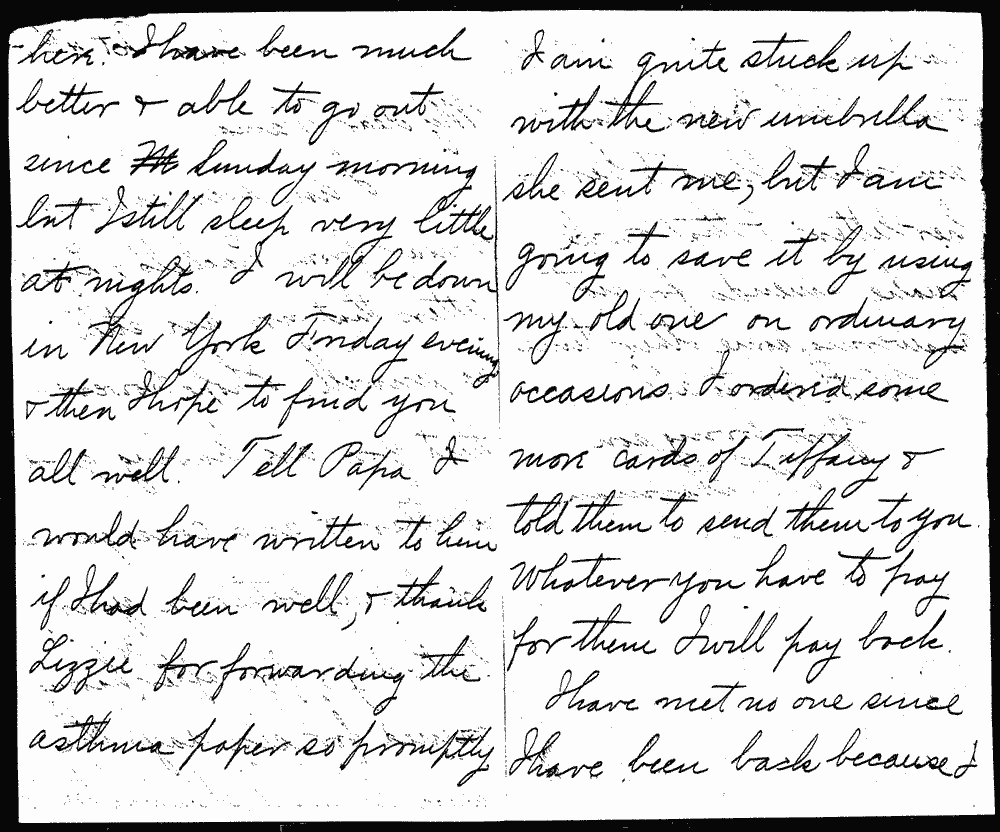 here. I have been much
better & able to go out
since M Sunday morning
but I still sleep very little
at nights. I will be down
in New York Friday evening
& then I hope to find you
all well. Tell Papa I
would have written to him
if I had been well, & thank
Lizzie for forwarding the
asthma paper so promptly
I am quite stuck up
with the new umbrella
she sent me, but I am
going to save it by using
my old one on ordinary
occasions. I ordered some
more cards of Tiffany &
told them to send them to you.
Whatever you have to pay
for them I will pay back.
I have met no one since
I have been back because I